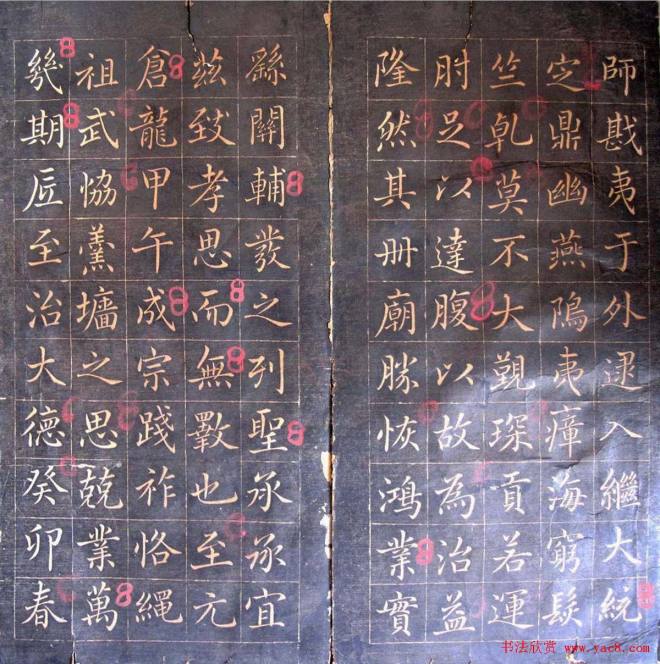 師戡夷于外逮入繼大統
㝎鼎幽燕隝夷瘴海窮髮
竺乹莫不大覲琛貢若運
肘足以達腹以故為治益
隆然其冊廟勝恢鴻業實
繇關輔發之列聖承承宜
兹致孝思而無斁也至元
倉龍甲午成宗踐祚恪繩
祖武恊羹墻之思兢業萬
幾期底至治大德癸卯春
书法欣赏 www.yac8.com